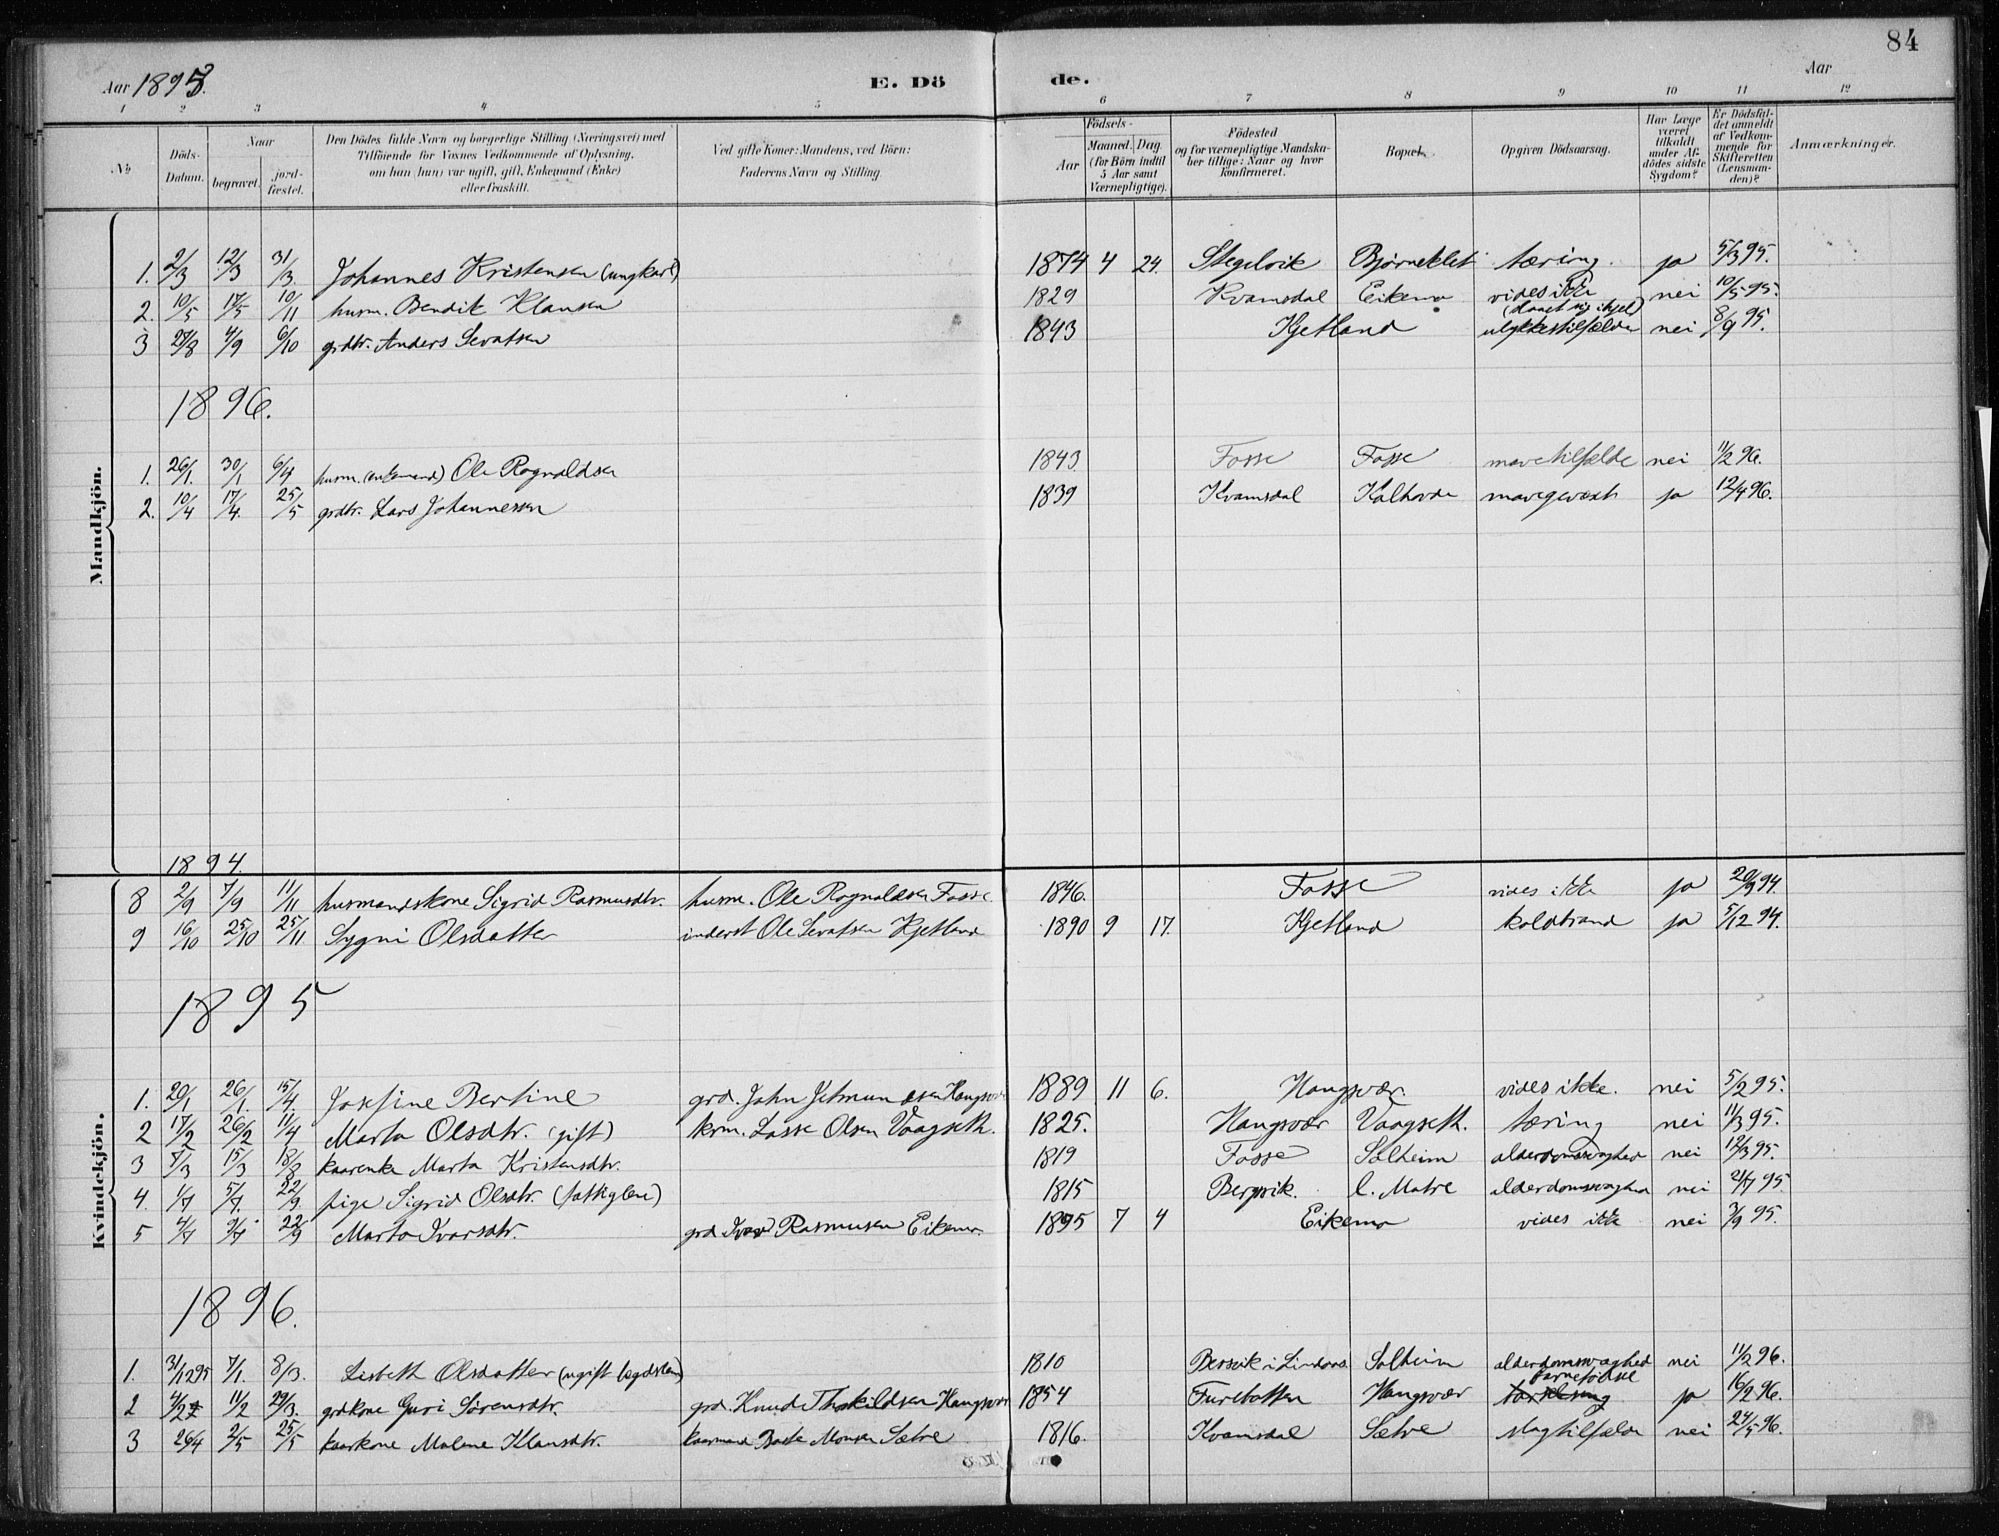 84
Aar 1895. E. Dö de. Aar
1 2 3 4 5 6 7 8 9 10 11 12
№ Döds-Datum. Naar begravet. jordfæstet. Den Dödes fulde Navn og borgerlige Stilling (Næringsvei) med Tilföiende for Voxnes Vedkommende af Oplysning, om han (hun) var ugift, gift, Enkemand (Enke) eller fraskilt. Ved gifte Koner: Mandens, ved Börn: Faderens Navn og Stilling. Födsels- Aar Maaned. Dag. (for Börn indtil 5 Aar samt Værnepligtige). Födested og for værnepligtige Mandskaber tillige: Naar og hvor konfirmeret. Bopæl. Opgiven Dödsaarsag. Har Læge været tilkaldt under Afdödes sidste Sygdom? Er Dödsfaldet anmeldt af Vedkommende for Skifteretten (Lensmanden)? Anmærkninger.
Mandkjön.
1. 2/3 12/3 31/3. Johannes Kristensen (ungkarl) 1874 4 24. Stegelvik Bjørneklet tæring. ja 5/3 95.
2. 10/5 17/5 10/11 husm. Bendik Klausen 1829 Kvamsdal Eikemo vides ikke nei 10/5 95.
(slaaet sig ihjel)
3 27/8 4/9 6/10 grdbr. Anders Sevatsen 1843 Kjetland ulykkestilfælde nei 8/9 95.
1896.
1. 26/1. 30/1 6/4 husm. (enkemand) Ole Rognaldsen 1843 Fosse Fosse mavetilfælde nei 11/2 96.
2. 10/4 17/4. 25/5 grdbr. Lars Johannessen 1839 Kvamsdal Kolhovde mavegevæxt ja 12/4 96.
1894.
Kvindekjön.
8 2/9 7/9 11/11 husmandskone Sigrid Rasmusdtr. husm. Ole Rognaldsen Fosse 1846. Fosse vides ikke ja 20/9 94.
9 16/10 25/10 25/11 Sygni Olsdatter inderst Ole Sevatsen Kjetland 1890 9 17. Kjetland koldbrand ja 5/12 94.
1895
1. 20/1 26/1. 15/4. Josefine Bertine grd. John Jetmundsen Haugsvær 1889 11 6. Haugsvær. vides ikke. nei 5/2 95.
2 17/2 26/2 11/4 Marta Olsdtr. (gift) krm. Lasse Olsen Vaagseth. 1825. Haugsvær Vaagseth. tæring nei 11/3 95.
3 7/3 15/3 18/8 kaarenke Marta Kristensdtr. 1819 Fosse Solheim alderdomssvaghed nei 12/3 95.
4. 1/7 5/7. 22/9. pige Sigrid Olsdtr. 1815 Bergsvik. l. Matre alderdomssvaghed nei 21/7 95.
5 4/7 9/7 22/9 Marta Ivarsdtr. grd. Ivar Rasmussen Eikemo. 1895 7 4 Eikemo vides ikke nei 3/9 95.
1896.
1. 31/12 95 7/1. 8/3. Lisbeth Olsdatter (ugift lægdslem) 1810 Bersvik i Lindaas Solheim alderdomssvaghed nei 11/2 96.
barnefødsel
2 4/2 11/2 29/3. grdkone Guri Sørensdtr. grd. Knud Thorkildsen Haugsvær 1854 Furebotten Haugsvær barselseng ja 16/2 96.
3 26/4 2/5 25/5 kaarkone Malene Klausdtr. kaarmand Baste Monsen Sætre 1816. Kvamsdal Sætre slagtilfælde nei 24/5 96.